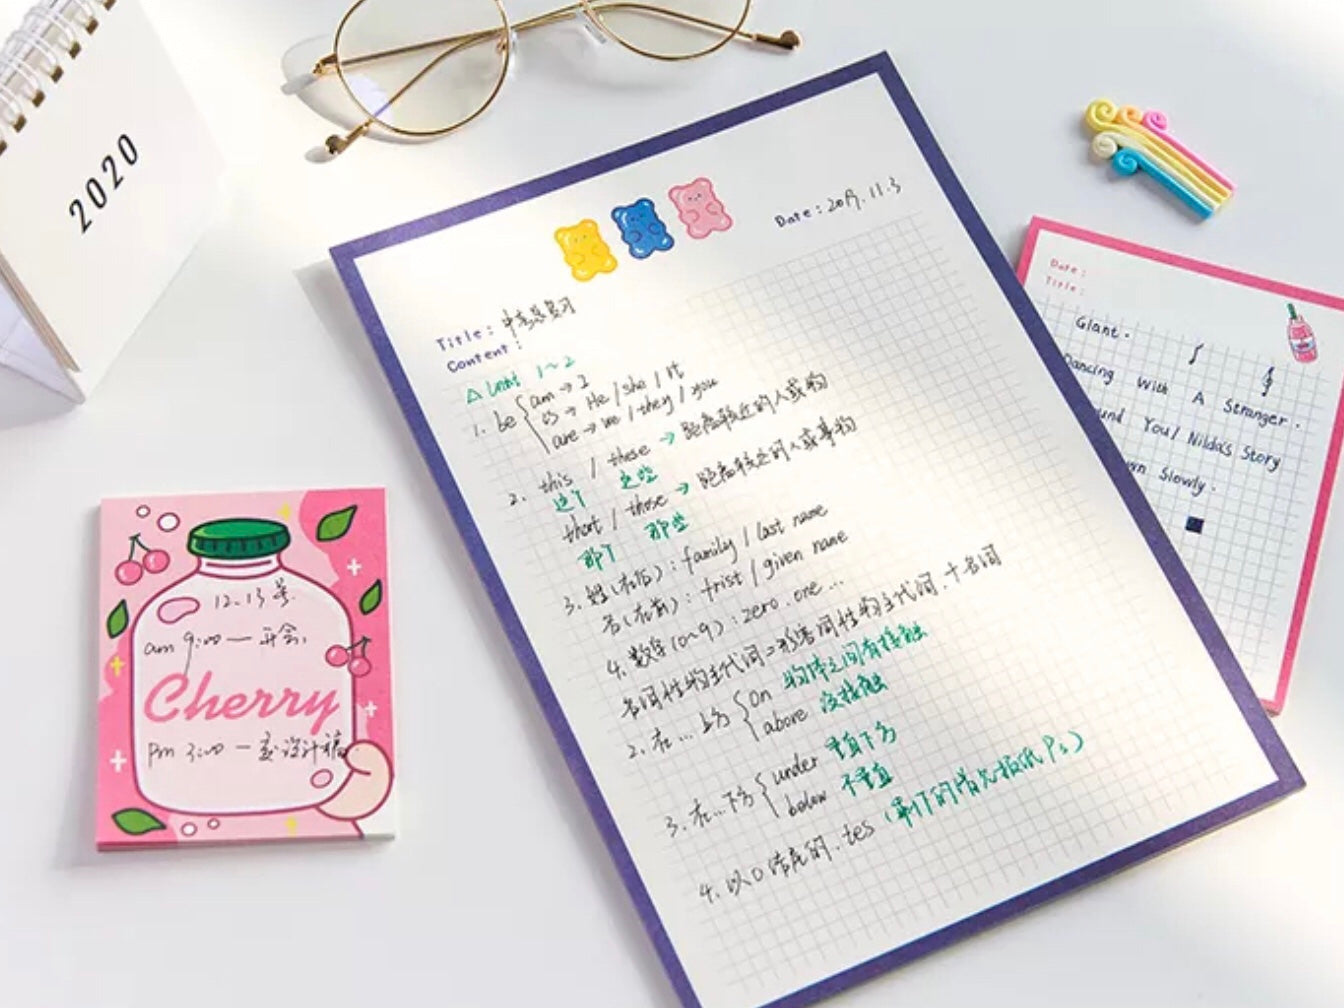 2020
Date: 2019.11.3
Title: 中考总复习
Content:
△ Unit 1~2
1. be { am → I
is → He / she / it
are → we / they / you
2. this / these → 距离较近的人或物
这个 这些
that / those → 距离较远的人或事物
那个 那些
3. 姓(在后): family / last name
名(在前): frist / given name
4. 数字(0~9): zero. one...
名词性物主代词=形容词性物主代词.+名词
2. 在...上方 { on 物体之间有接触
above 没接触
3. 在...下方 { under 垂直下方
below 不垂直
4. 以o结尾的. +es
12.13号
am 9:00 — 开会
Cherry
pm 3:00 — 设计稿
Date:
Title:
Giant.
Dancing With A Stranger.
und You/ Nilda's Story
wn Slowly.